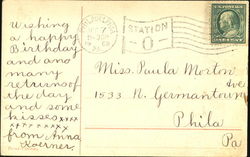 Wishing
a happy
Birthday
and and
many
returns of
the day
and some
kisses xxxx
xxxxxxxx
from Anna
Koerner.
STATION
O
Miss. Paula Morton
1533 N. Germantown
Ave
Phila
Pa